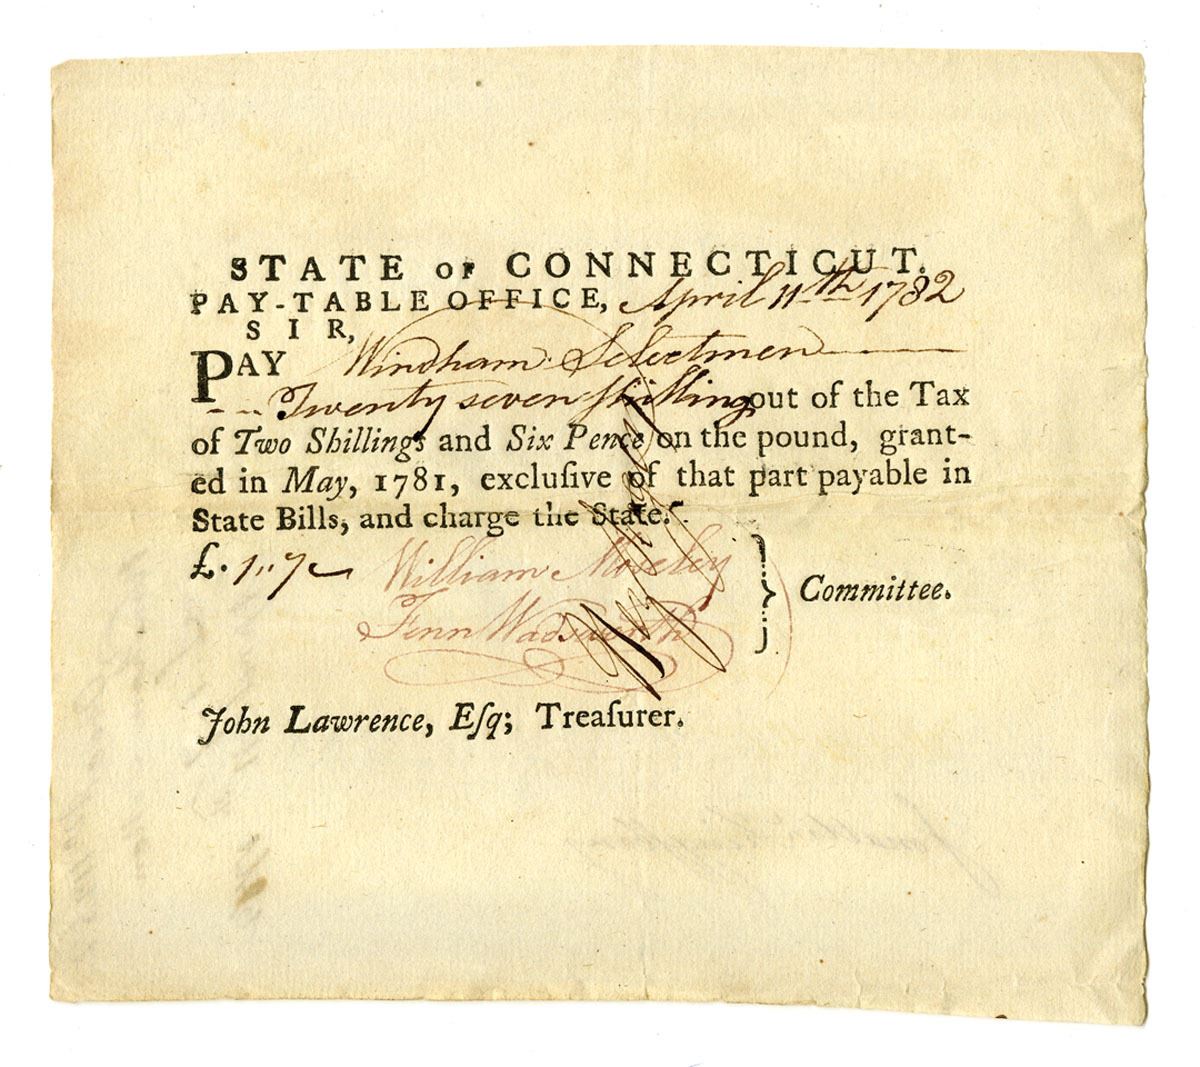 STATE OF CONNECTICUT.
PAY-TABLE OFFICE, April 11th 1782
SIR,
PAY Windham Selectmen
Twenty seven ſhillings out of the Tax
of Two Shillings and Six Pence on the pound, grant-
ed in May, 1781, excluſive of that part payable in
State Bills, and charge the State.
£. 1,,7
William Moseley
Fenn Wadsworth
Committee.
John Lawrence, Eſq; Treaſurer.